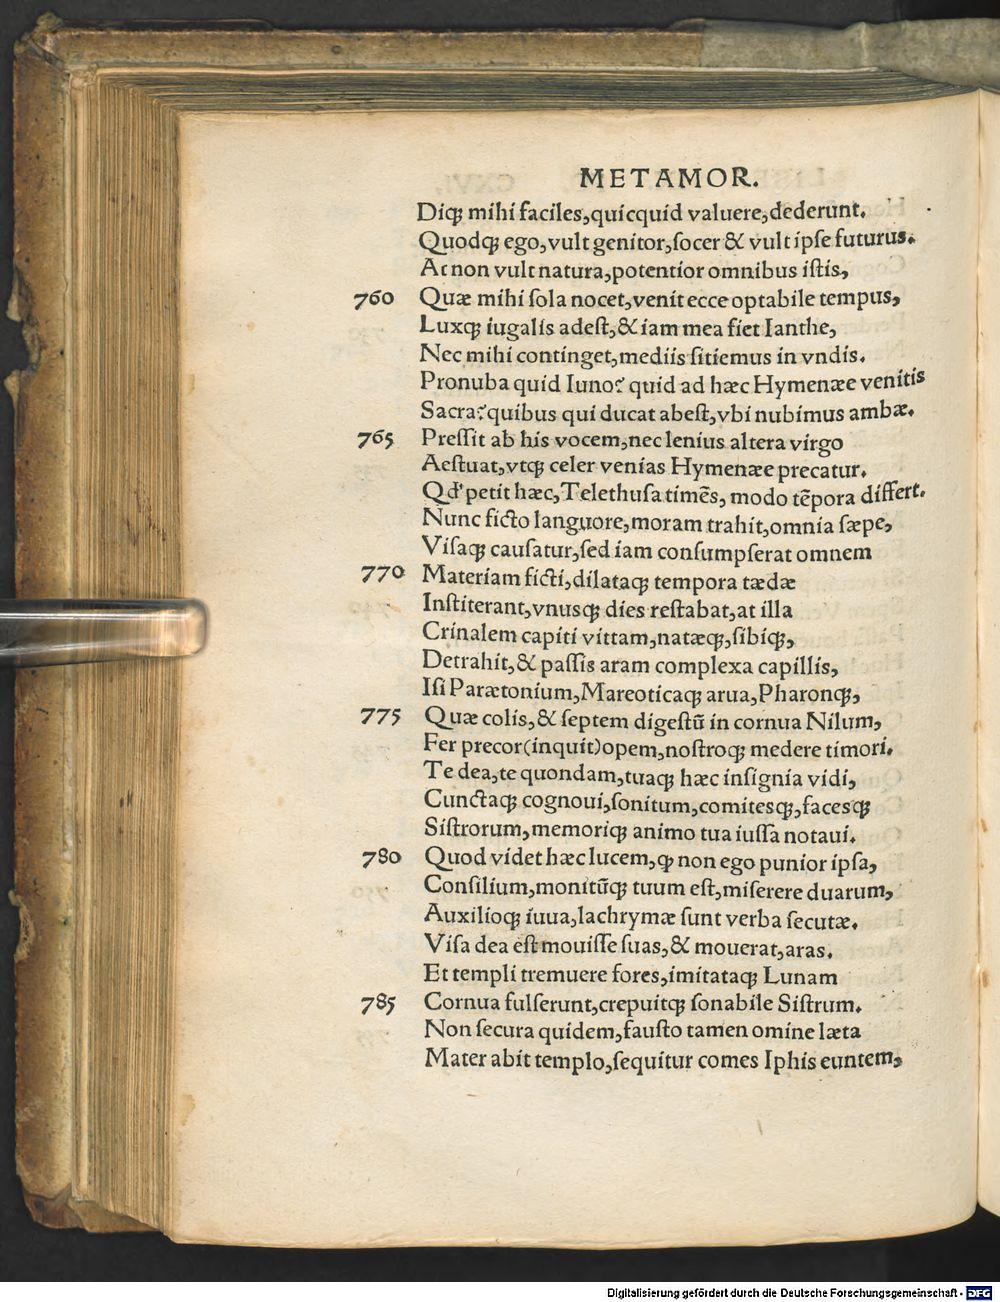 METAMOR.
Diqꝫ mihi faciles,quicquid valuere,dederunt.
Quodqꝫ ego,vult genitor,ſocer & vult ipſe futurus.
At non vult natura,potentior omnibus iſtis,
760 Quæ mihi ſola nocet,venit ecce optabile tempus,
Luxqꝫ iugalis adeſt,& iam mea fiet Ianthe,
Nec mihi continget,mediis ſitiemus in vndis.
Pronuba quid Iuno? quid ad hæc Hymenæe venitis
Sacra?quibus qui ducat abeſt,vbi nubimus ambæ.
765 Preſſit ab his vocem,nec lenius altera virgo
Aeſtuat,vtqꝫ celer venias Hymenæe precatur.
Qd' petit hæc,Telethuſa timẽs, modo tẽpora differt.
Nunc ficto languore,moram trahit,omnia ſæpe,
Viſaqꝫ cauſatur,ſed iam conſumpſerat omnem
770 Materiam ficti,dilataqꝫ tempora tædæ
Inſtiterant,vnusqꝫ dies reſtabat,at illa
Crinalem capiti vittam,natæqꝫ,ſibiqꝫ,
Detrahit,& paſſis aram complexa capillis,
Iſi Parætonium,Mareoticaqꝫ arua,Pharonqꝫ,
775 Quæ colis,& ſeptem digeſtũ in cornua Nilum,
Fer precor(inquit)opem,noſtroqꝫ medere timori.
Te dea,te quondam,tuaqꝫ hæc inſignia vidi,
Cunctaqꝫ cognoui,ſonitum,comitesqꝫ,facesqꝫ
Siſtrorum,memoriqꝫ animo tua iuſſa notaui.
780 Quod videt hæc lucem,ꝙ non ego punior ipſa,
Conſilium,monitũqꝫ tuum eſt,miſerere duarum,
Auxilioqꝫ iuua,lachrymæ ſunt verba ſecutæ.
Viſa dea eſt mouiſſe ſuas,& mouerat,aras.
Et templi tremuere fores,imitataqꝫ Lunam
785 Cornua fulſerunt,crepuitqꝫ ſonabile Siſtrum.
Non ſecura quidem,fauſto tamen omine læta
Mater abit templo,ſequitur comes Iphis euntem,
Digitalisierung gefördert durch die Deutsche Forschungsgemeinschaft - DFG